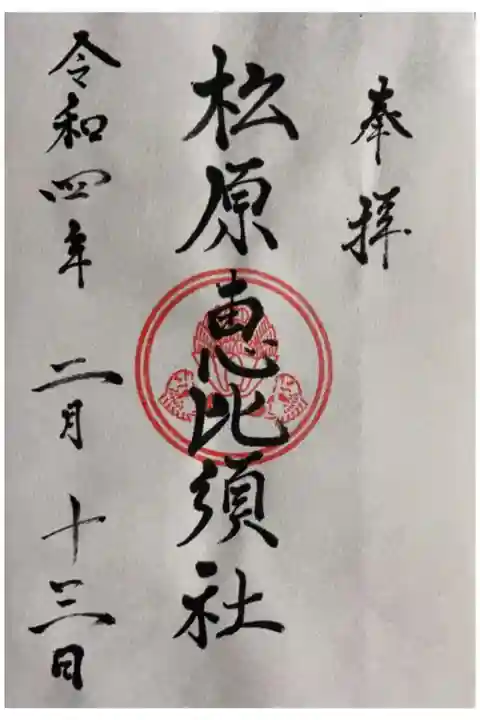 奉拝
松原恵比須社
令和四年 二月 十三日